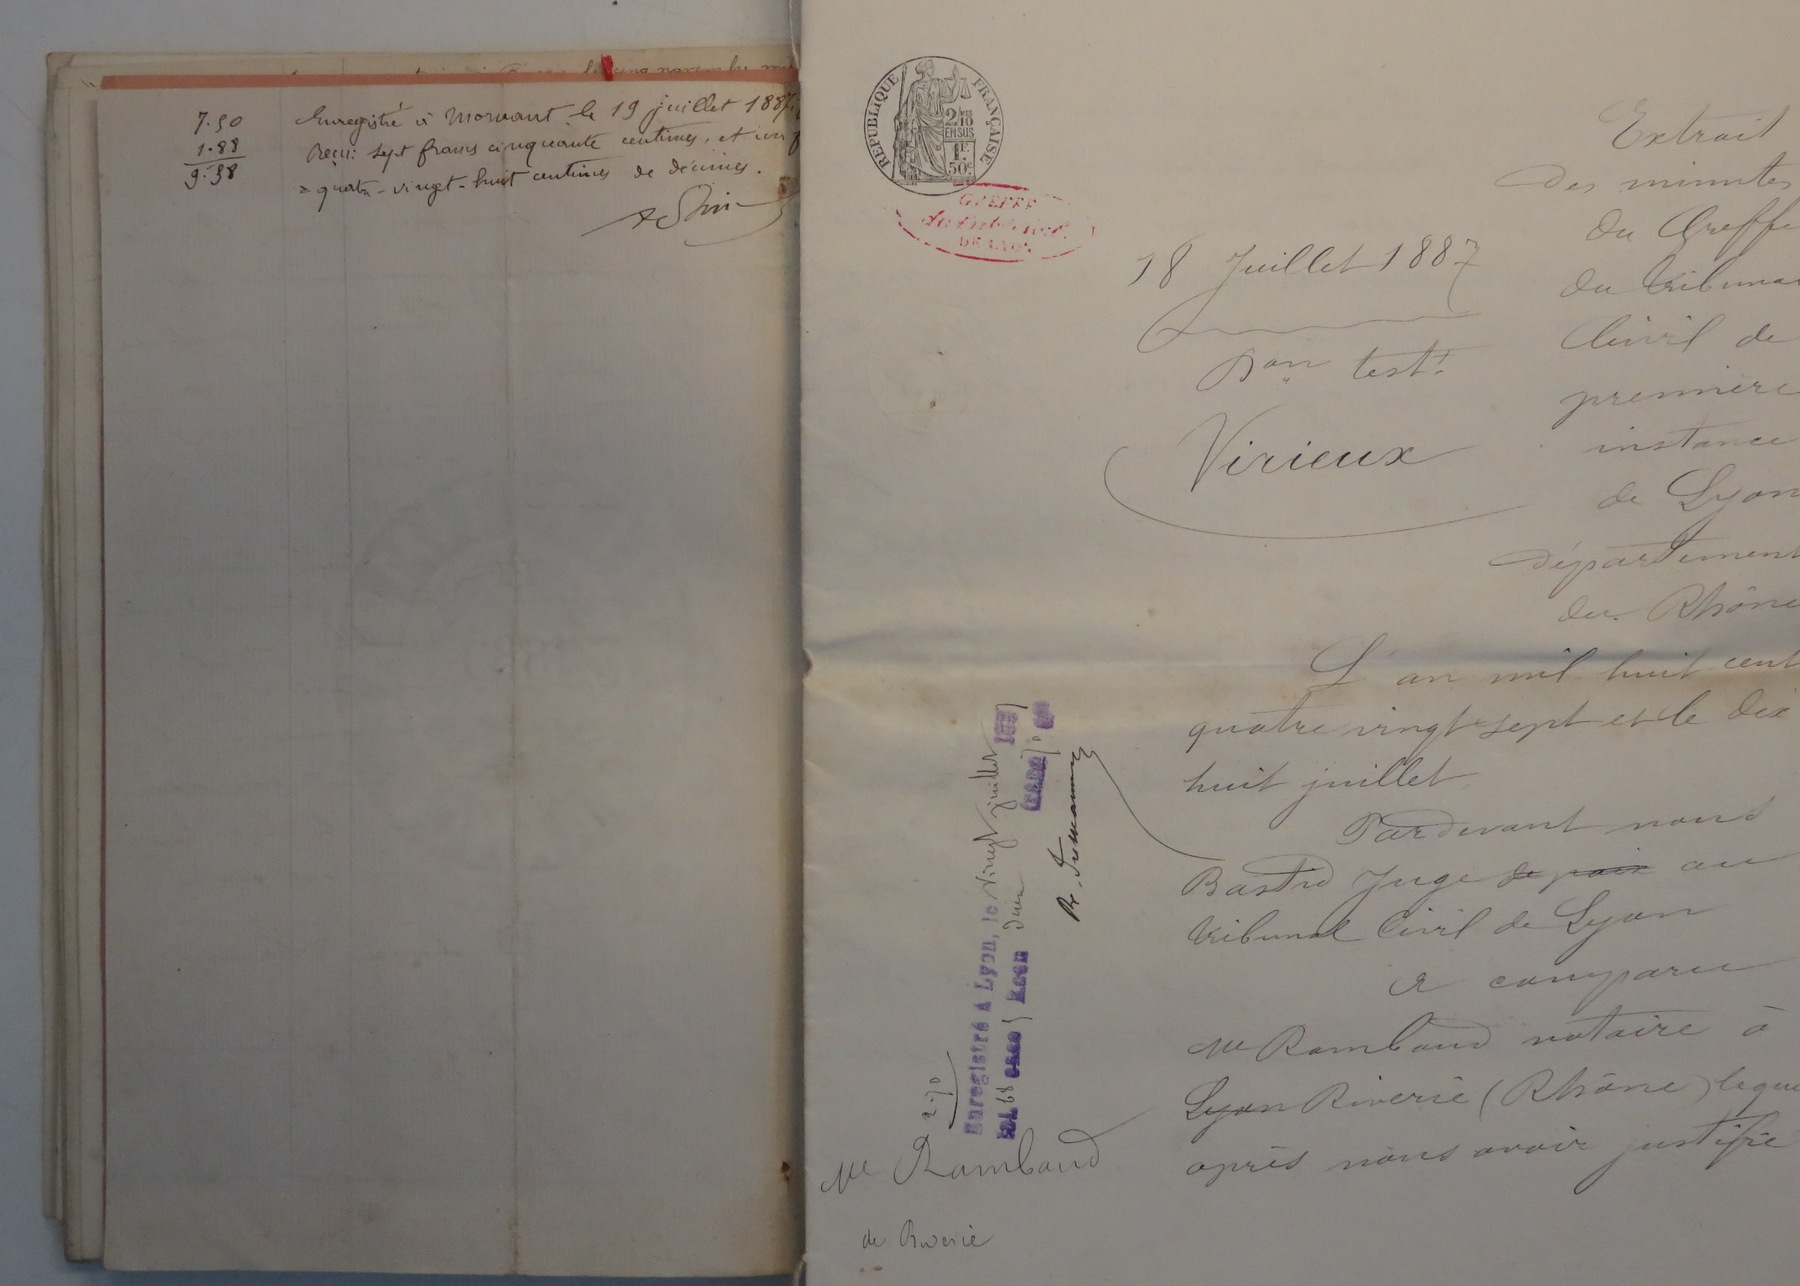 7.50
1.88
9.38
Enregistré à Mornant le 19 juillet 1887,
Reçu: sept francs cinquante centimes, et un f
quatre-vingt-huit centimes de décimes.
RÉPUBLIQUE FRANÇAISE
2/10
EN SUS
1F
50c
GREFFE
DE LYON
18 Juillet 1887
Don testt
Virieux
Extrait
des minutes
du Greffe
du tribunal
Civil de
première
instance
de Lyon
département
du Rhône
L'an mil huit cent
quatre vingt sept et le dix
huit juillet
Pardevant nous
Bastid Juge de paix au
tribunal Civil de Lyon
a comparu
Me Rambaud notaire à
Lyon Riverie (Rhône) leque
après nous avoir justifié
Enregistré à Lyon, le vingt juillet 1887
fol 68
2.70
Me Rambaud
de Riverie